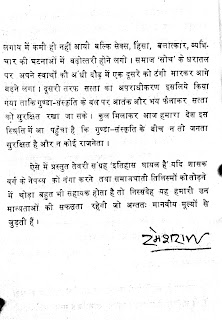 लगाय में कमी ही नहीं आयी बल्कि सेक्स, हिंसा, बलात्कार, व्यभि-
चार की घटनाओं में बढ़ोत्तरी होने लगी। समाज 'सोच' के धरातल
पर अपने स्वार्थों की अंधी दौड़ में एक दूसरे को ठंगी मारकर आगे
बढ़ने लगा। दूसरी तरफ सत्ता का अपराधीकरण इसलिये किया
गया ताकि गुण्डा-संस्कृति के बल पर आतंक और भय फैलाकर सत्ता
को सुरक्षित रखा जा सके। कुल मिलाकर आज हमारा देश इस
स्थिति में आ पहुंचा है कि गुण्डा-संस्कृति के बीच न तो जनता
सुरक्षित है और न कोई राजनेता।
ऐसे में प्रस्तुत तेवरी संग्रह 'इतिहास घायल है' यदि शासक
वर्ग के नेपथ्य को नंगा करने तथा समाजघाती तिलिस्मों को तोड़ने
में थोड़ा बहुत भी सहायक होता है तो निस्संदेह यह हमारी उन
मान्यताओं की सफलता रहेगी जो अन्ततः मानवीय मूल्यों से
जुड़ती हैं।
रमेशराज